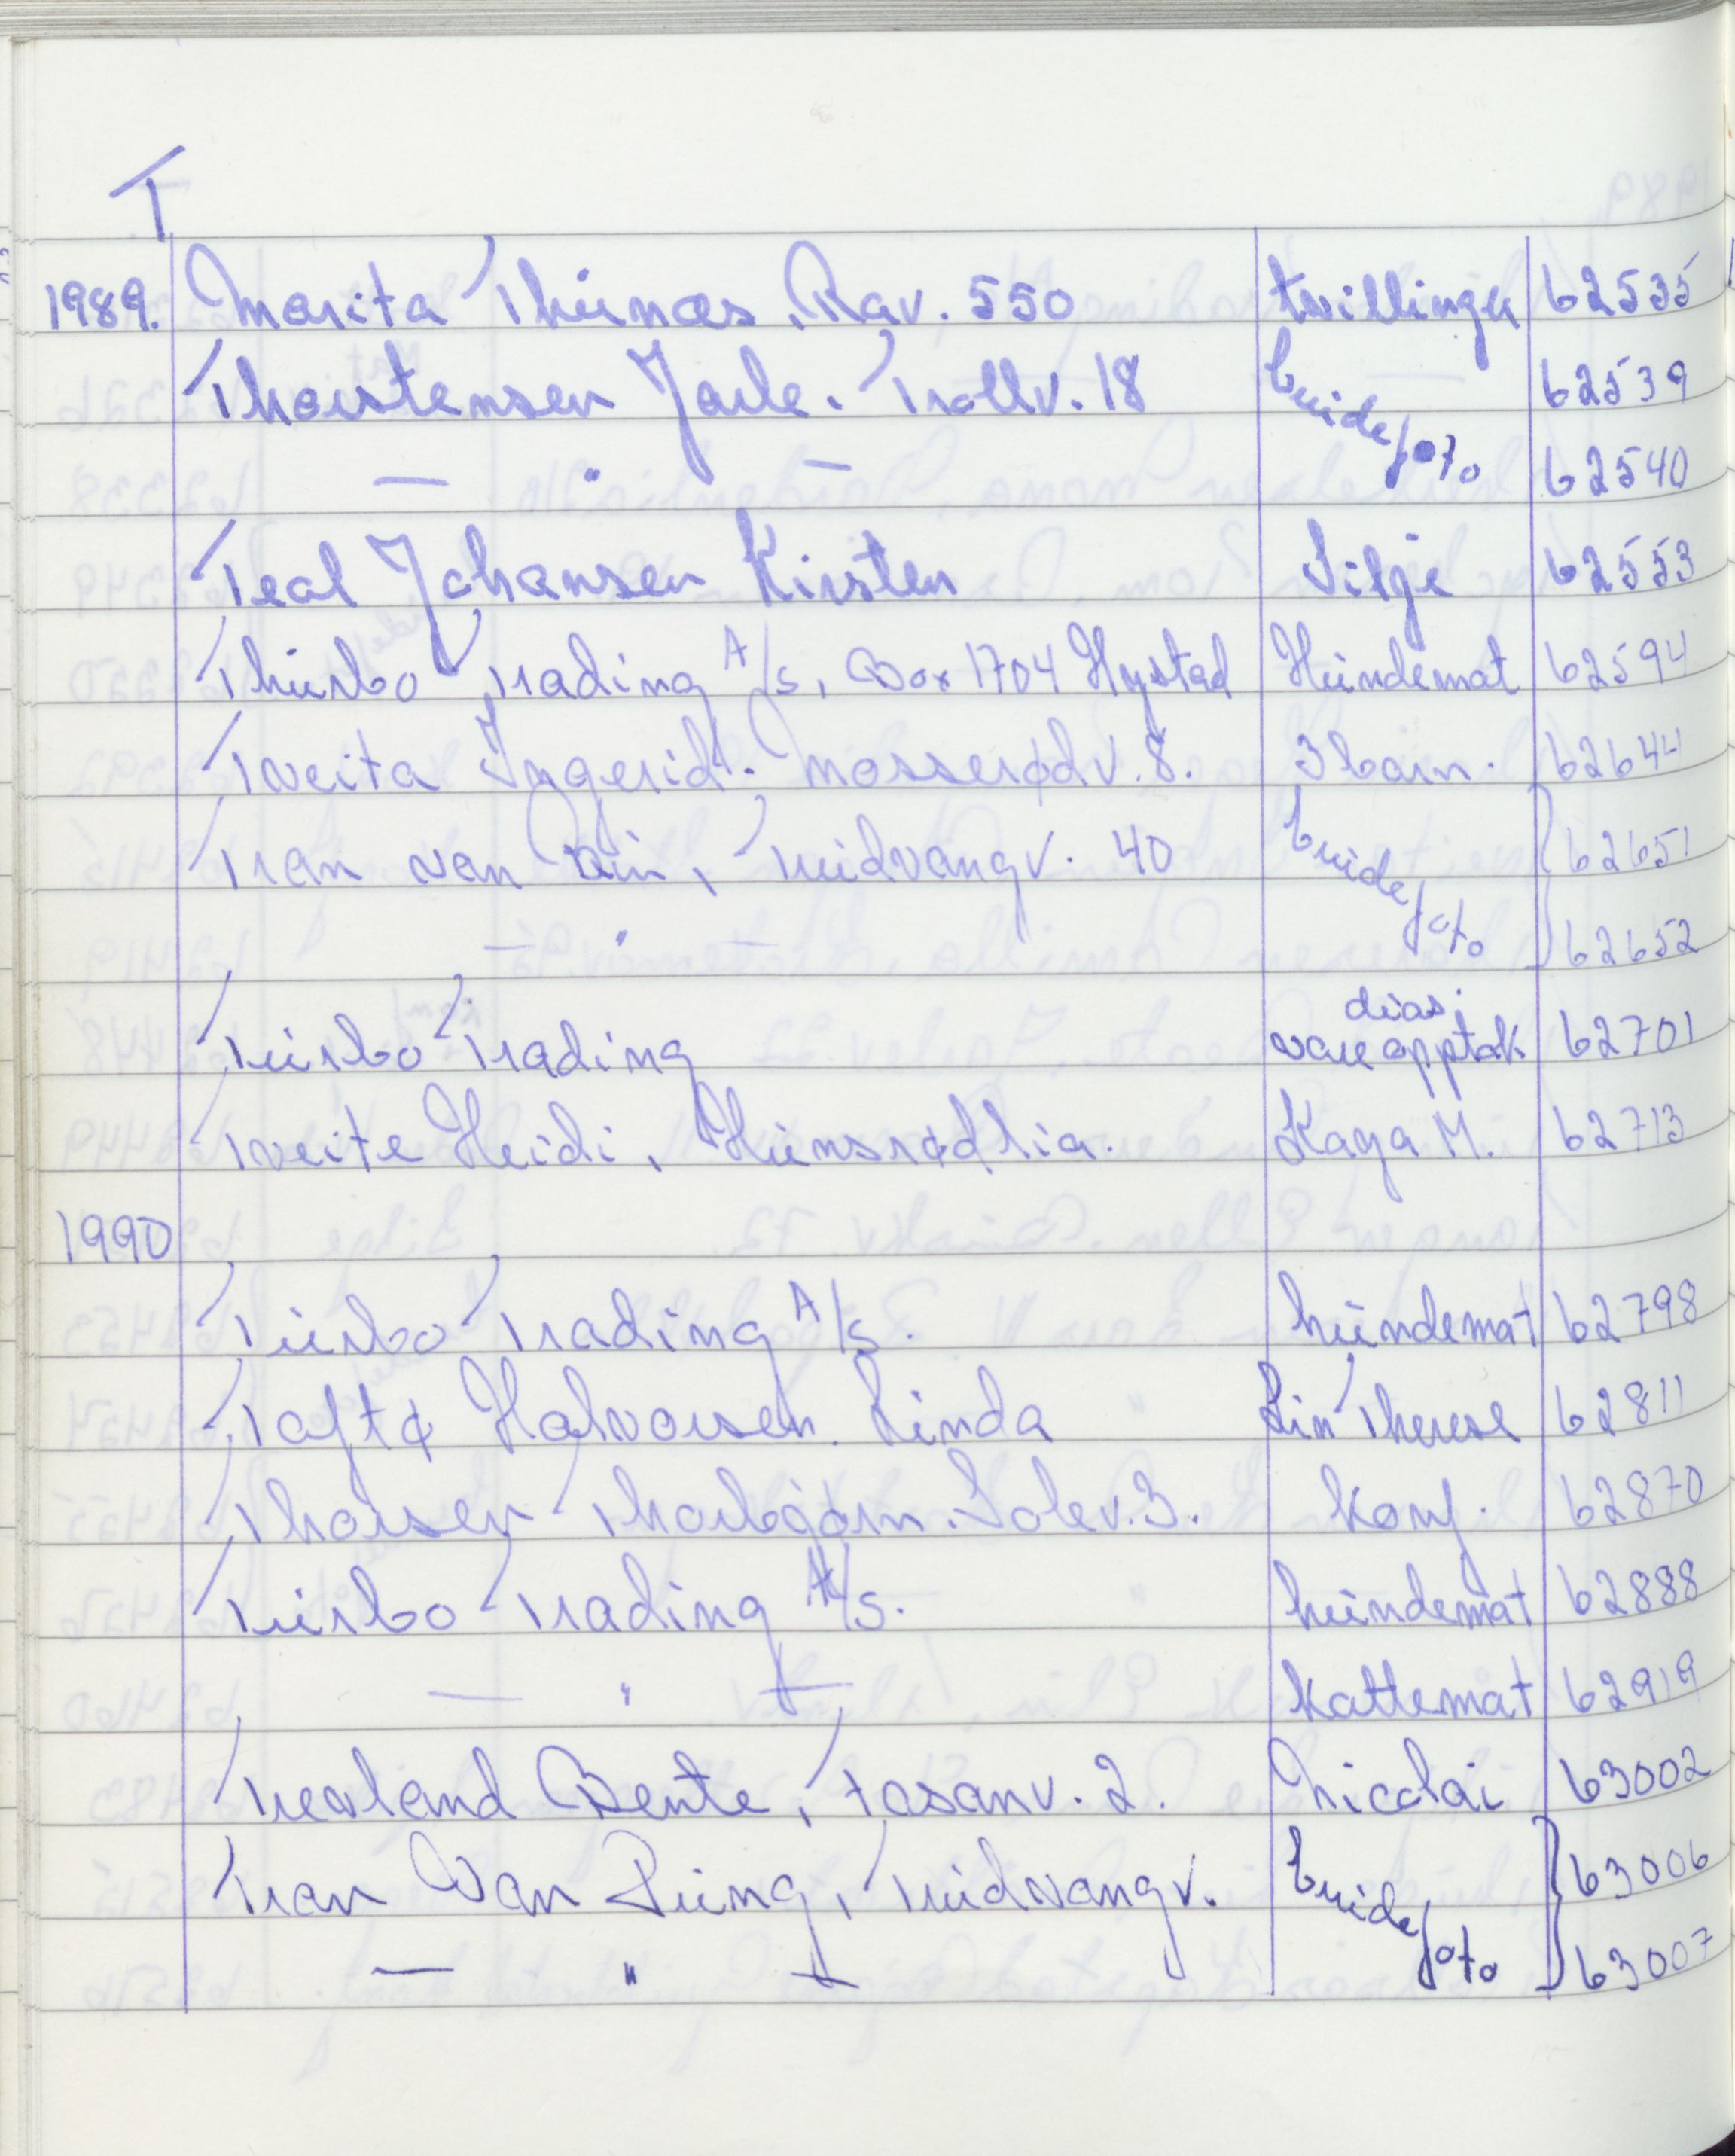 T
1989. Marita Thunæs, Rav. 550 tvillinger 62535
Thorstensen Jarle. Trollv. 18 brudefoto 62539
— " — 62540
Teal Johansen Kirsten Silje 62553
Thurbo Trading A/s, Box 1704 Hystad Hundemat 62594
Tveita Ingerid. Mosserødv. 8. 3 barn. 62644
Tran van, Rudvangv. 40 brudefoto 62651
— " — 62652
Turbo Trading dias. vareopptak 62701
Tveite Heidi, Hunsrødlia. Kaya M. 62713
1990
Turbo Trading A/s. hundemat 62798
Taftø Halvorsen. Linda Lin Therese 62811
Thorsen Thorbjørn. Solev. 3. konf. 62870
Turbo Trading A/s. hundemat 62888
— " — kattemat 62919
Trevland Bente, Fosanv. 2. Nicolai 63002
Tran Van Dung, Rudvangv. brudefoto 63006
— " — 63007